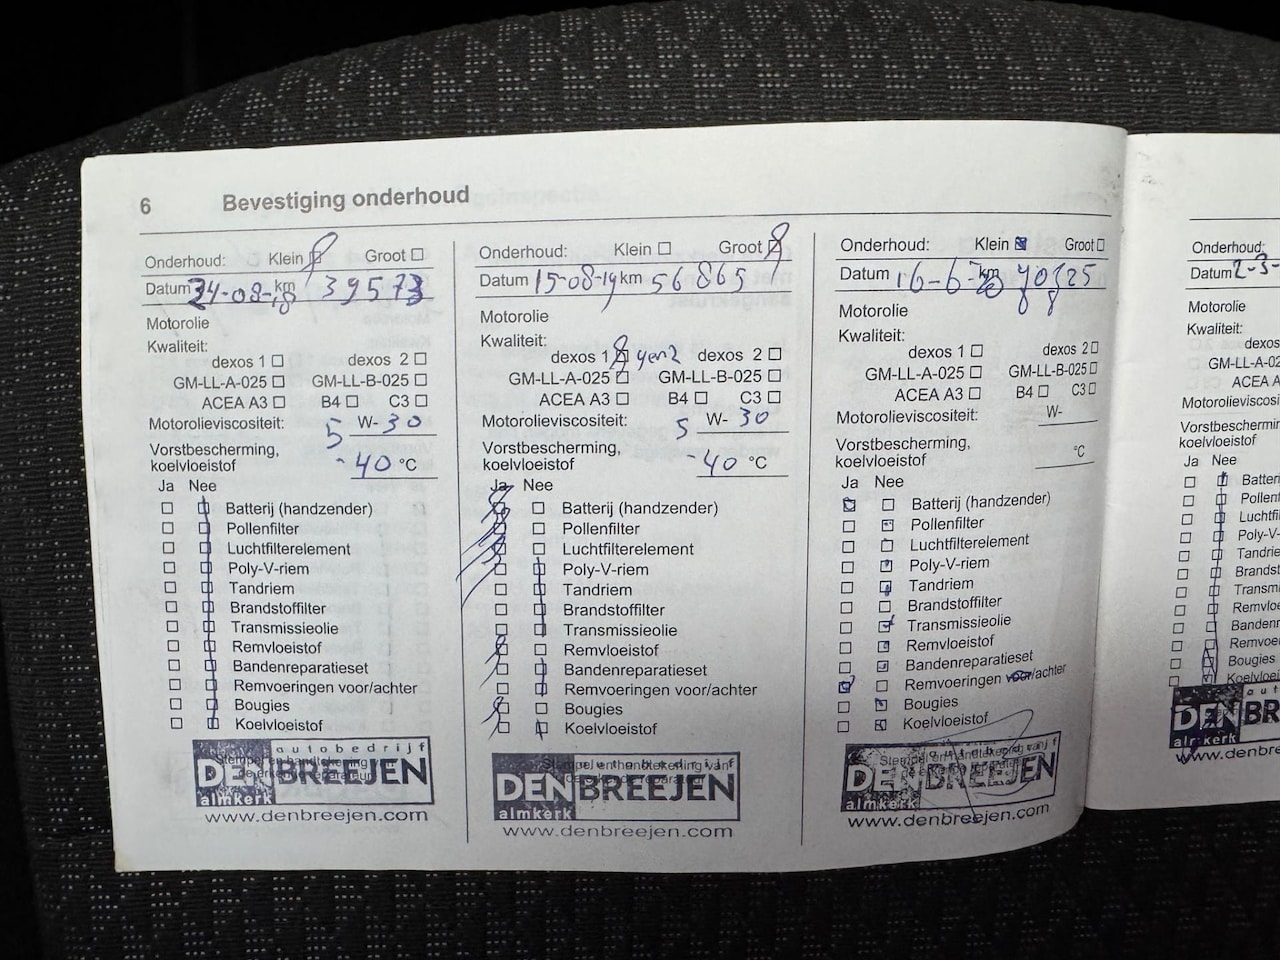 6 Bevestiging onderhoud
Onderhoud: Klein Groot
Datum 24-08-18 km 39573
Motorolie
Kwaliteit:
dexos 1 dexos 2
GM-LL-A-025 GM-LL-B-025
ACEA A3 B4 C3
Motorolieviscositeit: 5 W- 30
Vorstbescherming,
koelvloeistof -40 °C
Ja Nee
Batterij (handzender)
Pollenfilter
Luchtfilterelement
Poly-V-riem
Tandriem
Brandstoffilter
Transmissieolie
Remvloeistof
Bandenreparatieset
Remvoeringen voor/achter
Bougies
Koelvloeistof
Stempel en handtekening van
de erkende reparateur
autobedrijf
DEN BREEJEN
almkerk
www.denbreejen.com
Onderhoud: Klein Groot
Datum 15-08-19 km 56865
Motorolie
Kwaliteit:
dexos 1 gen2 dexos 2
GM-LL-A-025 GM-LL-B-025
ACEA A3 B4 C3
Motorolieviscositeit: 5 W- 30
Vorstbescherming,
koelvloeistof -40 °C
Ja Nee
Batterij (handzender)
Pollenfilter
Luchtfilterelement
Poly-V-riem
Tandriem
Brandstoffilter
Transmissieolie
Remvloeistof
Bandenreparatieset
Remvoeringen voor/achter
Bougies
Koelvloeistof
Stempel en handtekening van
de erkende reparateur
autobedrijf
DEN BREEJEN
almkerk
www.denbreejen.com
Onderhoud: Klein Groot
Datum 16-6-20 km
Motorolie
Kwaliteit:
dexos 1 dexos 2
GM-LL-A-025 GM-LL-B-025
ACEA A3 B4 C3
Motorolieviscositeit: W-
Vorstbescherming,
koelvloeistof °C
Ja Nee
Batterij (handzender)
Pollenfilter
Luchtfilterelement
Poly-V-riem
Tandriem
Brandstoffilter
Transmissieolie
Remvloeistof
Bandenreparatieset
Remvoeringen voor/achter
Bougies
Koelvloeistof
Stempel en handtekening van
autobedrijf
DEN BREEJEN
almkerk
www.denbreejen.com
Onderhoud:
Datum 2-3-
Motorolie
Kwaliteit:
dexos
GM-LL-A-025
ACEA A
Motorolieviscosi
Vorstbeschermin
koelvloeistof
Ja Nee
Batter
Pollen
Luchtfi
Poly-V-
Tandrie
Brandst
Transm
Remvlo
Bandenr
Remvoe
Bougies
Koelvloeis
au
DEN BR
almkerk
www.denbree